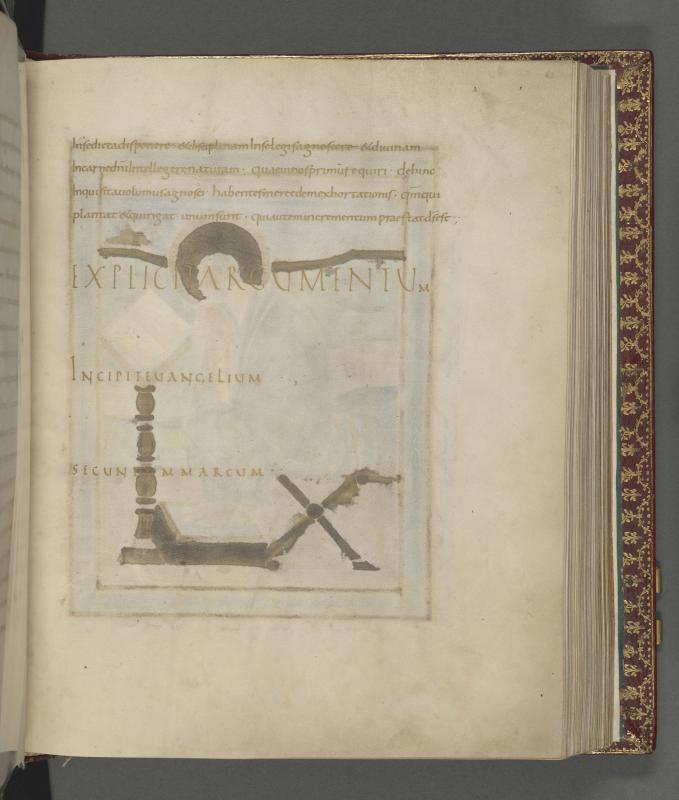 Insedictadisponere · &disciplinam Inselegisagnoscere · &diuinam
Incarnedni Intellegerenaturam · quaeinnosprimuṡrequiri · dehinc
Inquisitauolumusagnosci · habentesmercedemexhortationis · qmqui
plantat &quirigat unumsunt · quiautemincrementumpraestatdsest ·
EXPLICITARGUMENTUM
INCIPITEUANGELIUM
SECUN MMARCUM